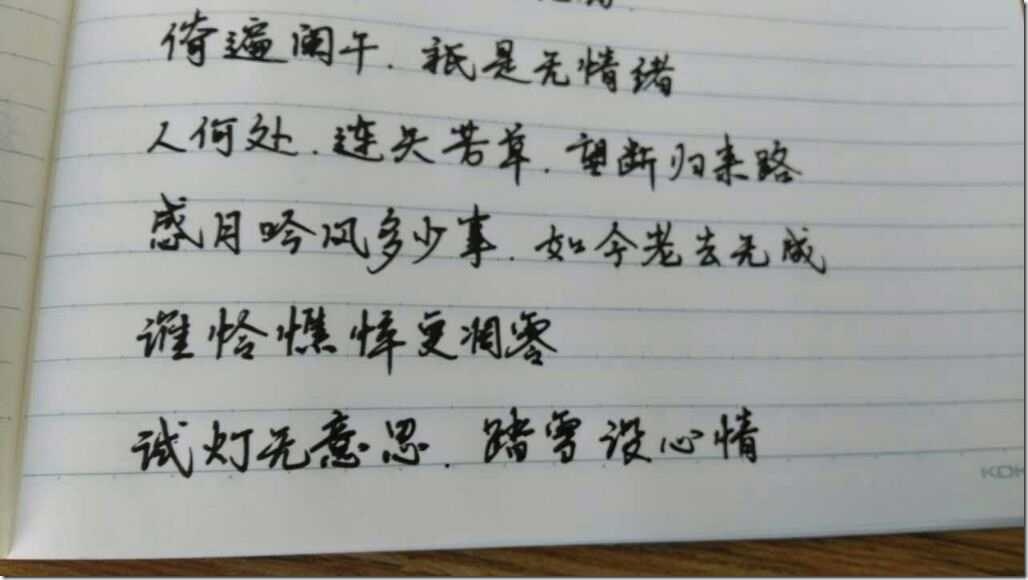 倚遍阑干.祇是无情绪
人何处.连天芳草.望断归来路
感月吟风多少事.如今老去无成
谁怜憔悴更凋零
试灯无意思.踏雪没心情
KOK